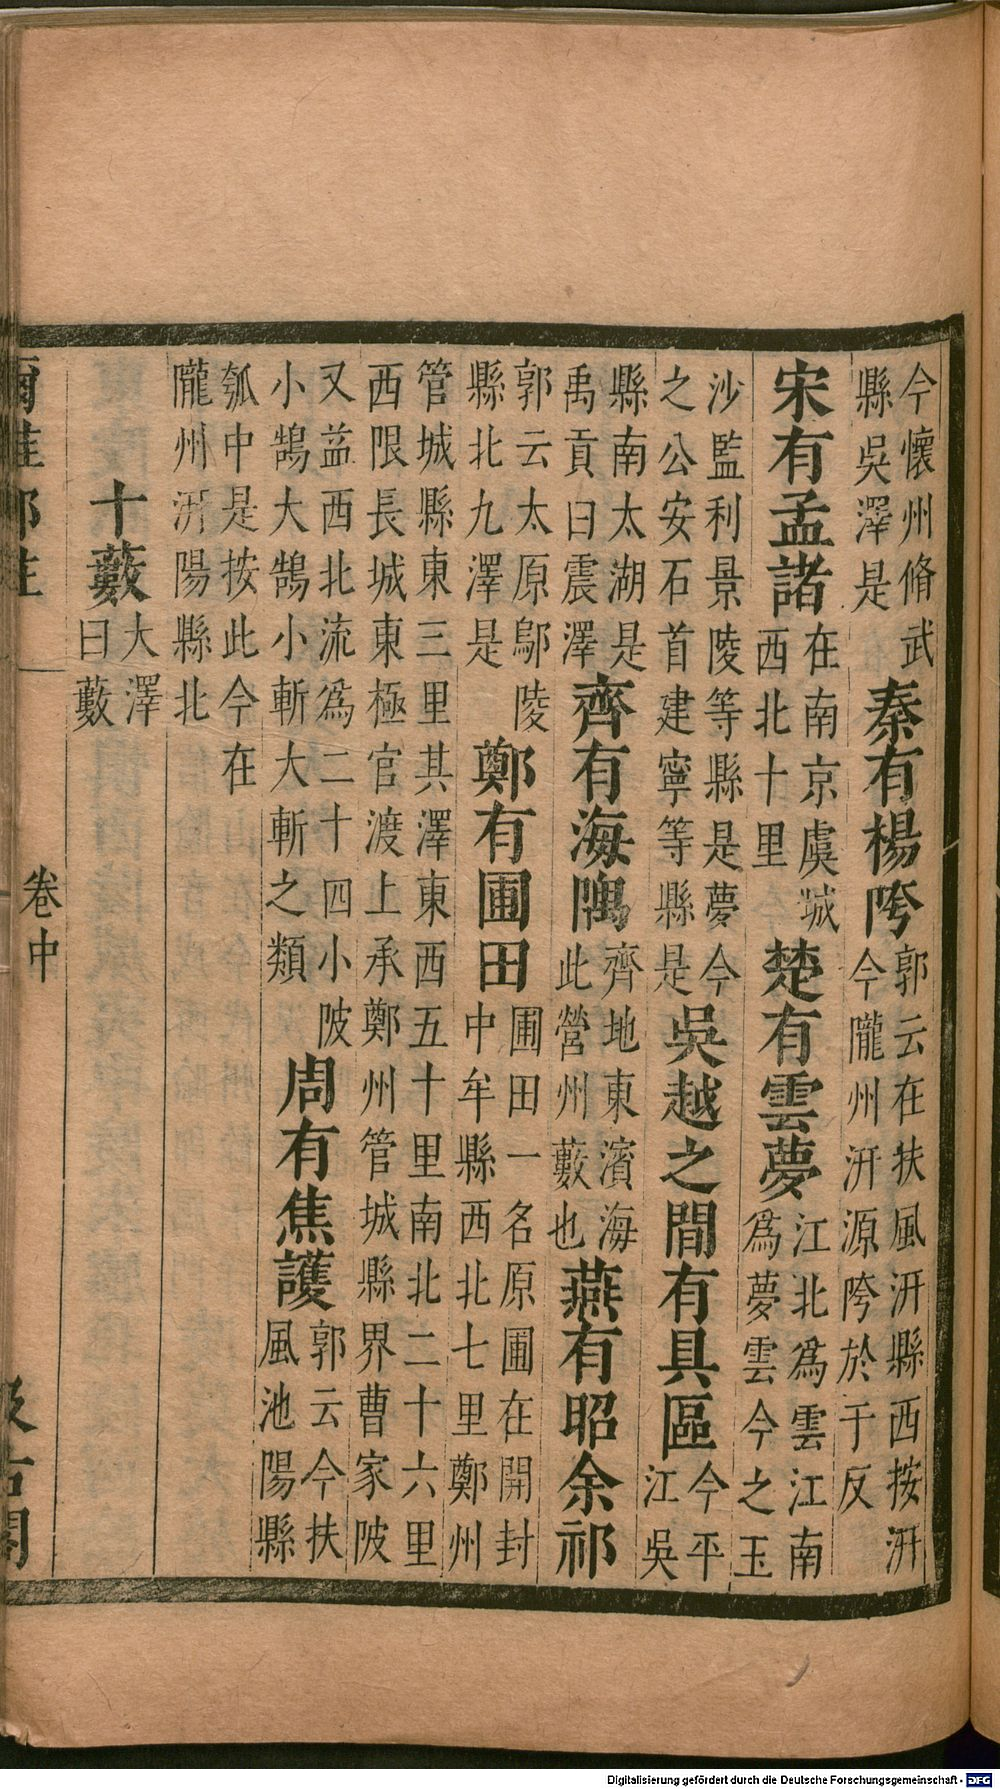 今懷州脩武縣吳澤是秦有楊陓郭云在扶風汧縣西按汧今隴州汧源陓於于反
宋有孟諸在南京虞城西北十里楚有雲夢江北爲雲江南爲夢雲今之玉
沙監利景陵等縣是夢今之公安石首建寧等縣是吳越之間有具區今平江吳
縣南太湖是禹貢曰震澤齊有海隅齊地東濱海此營州藪也燕有昭余祁
郭云太原鄔陵縣北九澤是鄭有圃田圃田一名原圃在開封中牟縣西北七里鄭州
管城縣東三里其澤東西五十里南北二十六里西限長城東極官渡上承鄭州管城縣界曹家陂
又益西北流爲二十四小陂小鵠大鵠小斬大斬之類周有焦護郭云今扶風池陽縣
瓠中是按此今在隴州汧陽縣北
十藪大澤曰藪
爾雅郭注 卷中 汲古閣
Digitalisierung gefördert durch die Deutsche Forschungsgemeinschaft - DFG